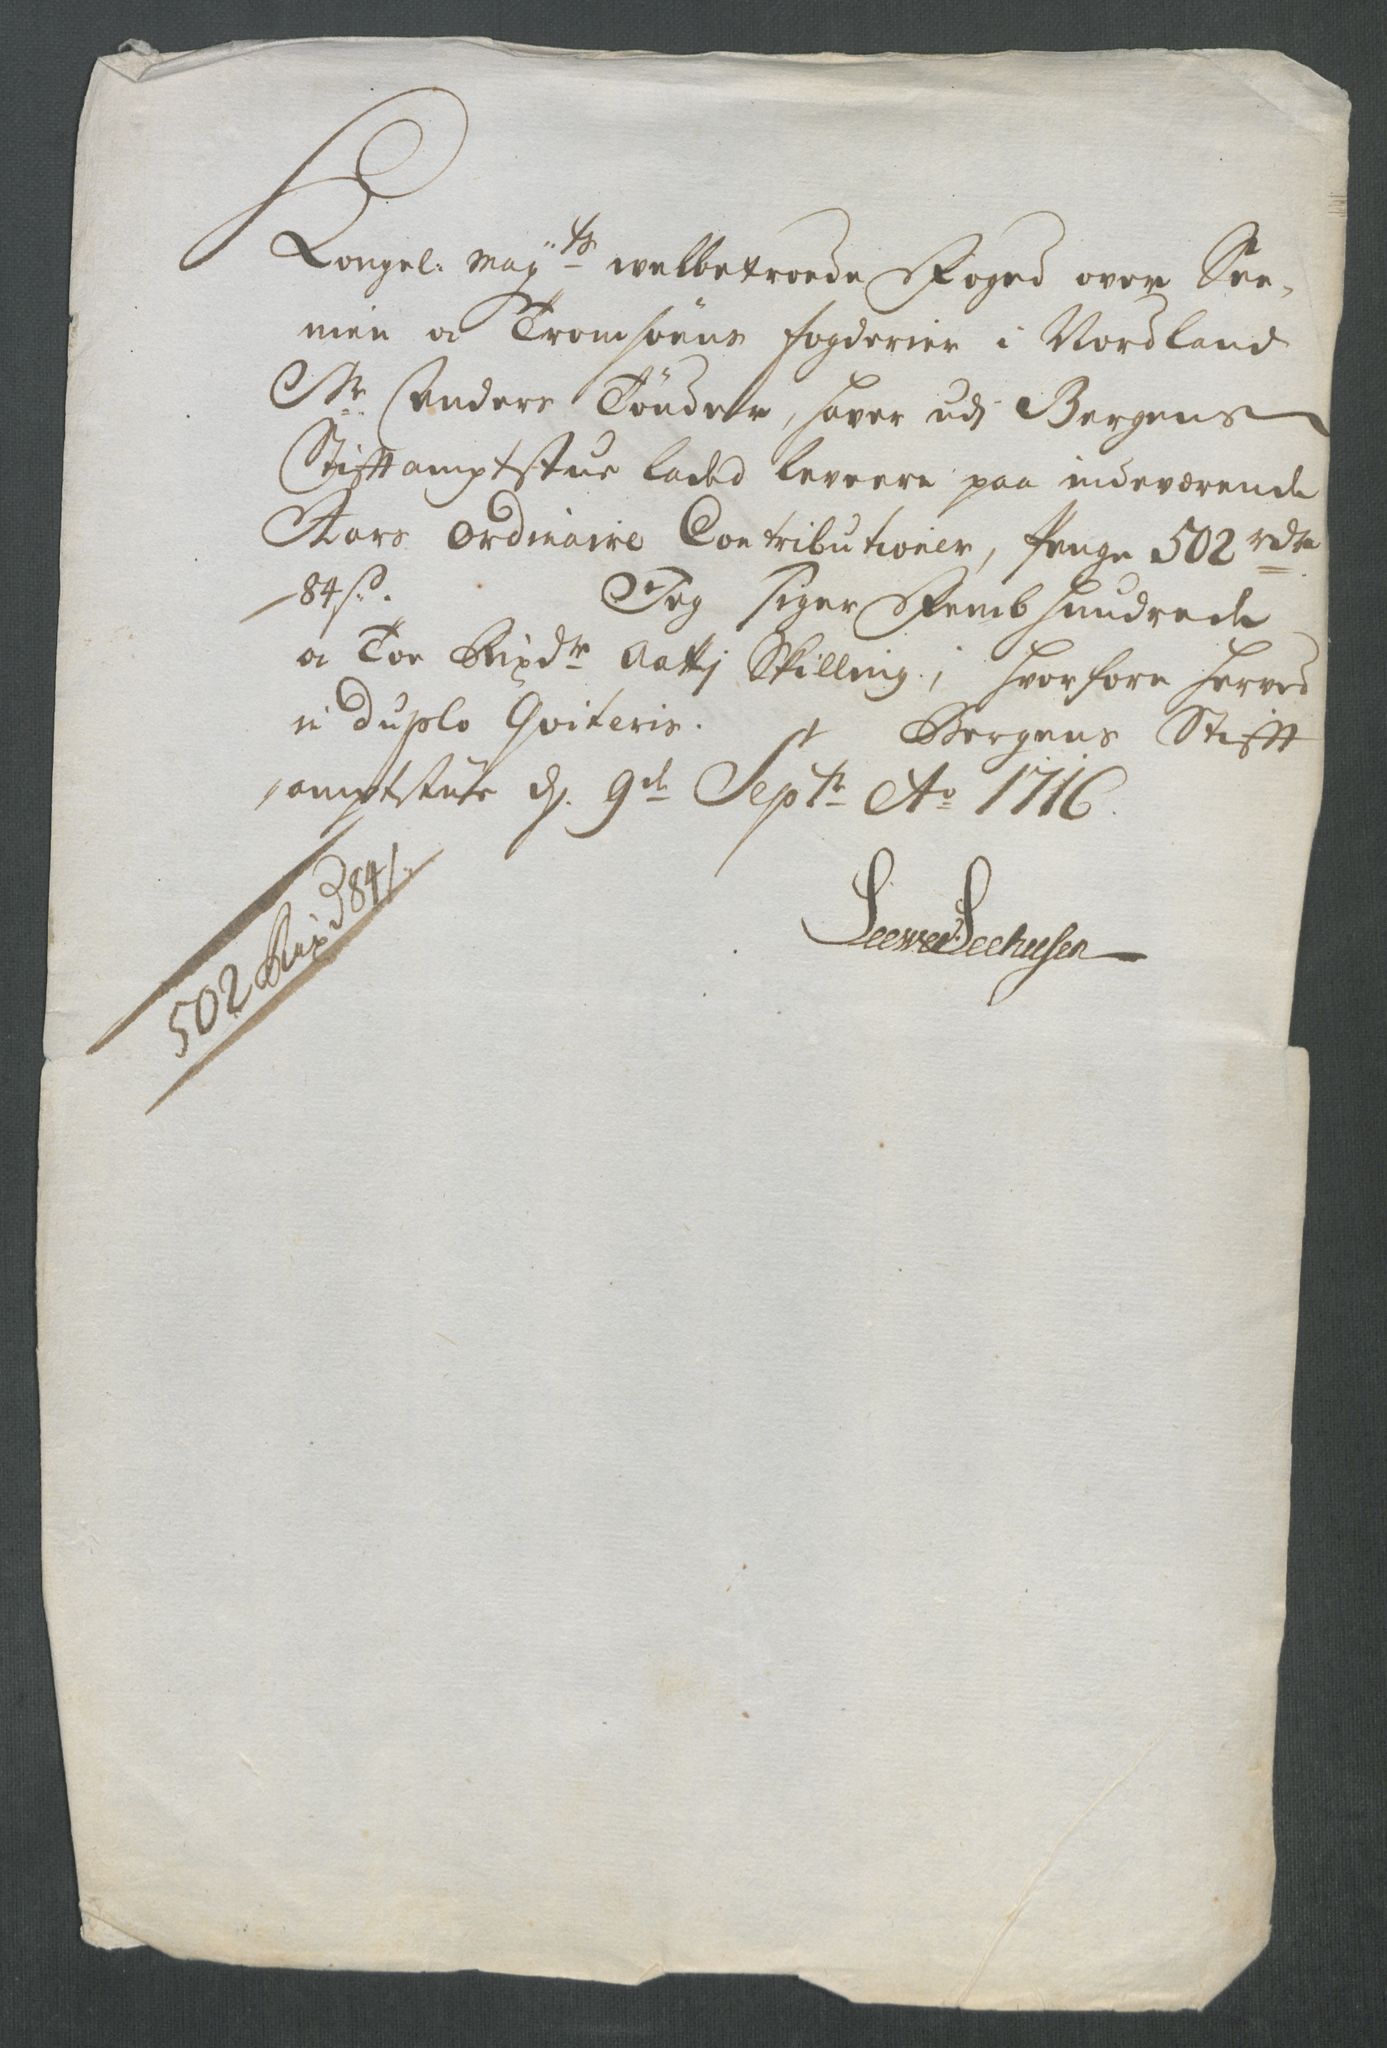 Kongel: May:ts welbetroede Foged over Sen-
nien oc Tromsöens fogderier i Nordland
Sr Anders Tönder, haver udj Bergens
Stifftamptstue laded levere paa indeværende
Aars Ordinaire Contributioner, Penge 502 rdr
84 s. Jeg siger Femb Hundrede
oc Toe Rixdr 84 Skilling, hvorfore herved
in duplo Qviteris. Bergens Stifft
amptstue d. 9de Septr Ao 1716.
Leewer Seehusen
502 Rixd 84 s.